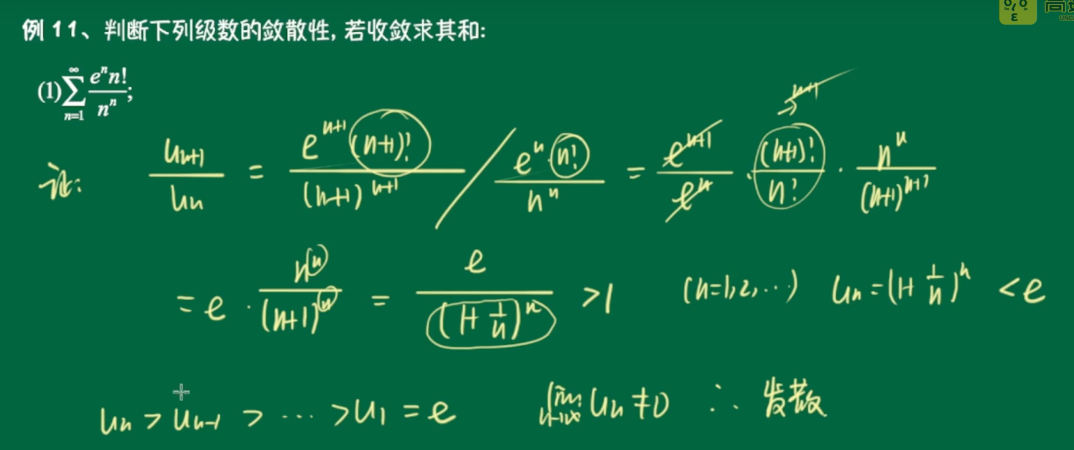 例 11、判断下列级数的敛散性, 若收敛求其和:
(1) ∑_{n=1}^{∞} e^n n! / n^n ;
证: u_{n+1} / u_n = e^{n+1} (n+1)! / (n+1)^{n+1} / e^n · n! / n^n = e^{n+1} / e^n · (n+1)! / n! · n^n / (n+1)^{n+1}
n+1
= e · n^n / (n+1)^n = e / (1+1/n)^n >1 (n=1,2,⋯) u_n = (1+1/n)^n < e
u_n > u_{n-1} > ⋯ > u_1 = e lim_{n→∞} u_n ≠ 0 ∴ 发散